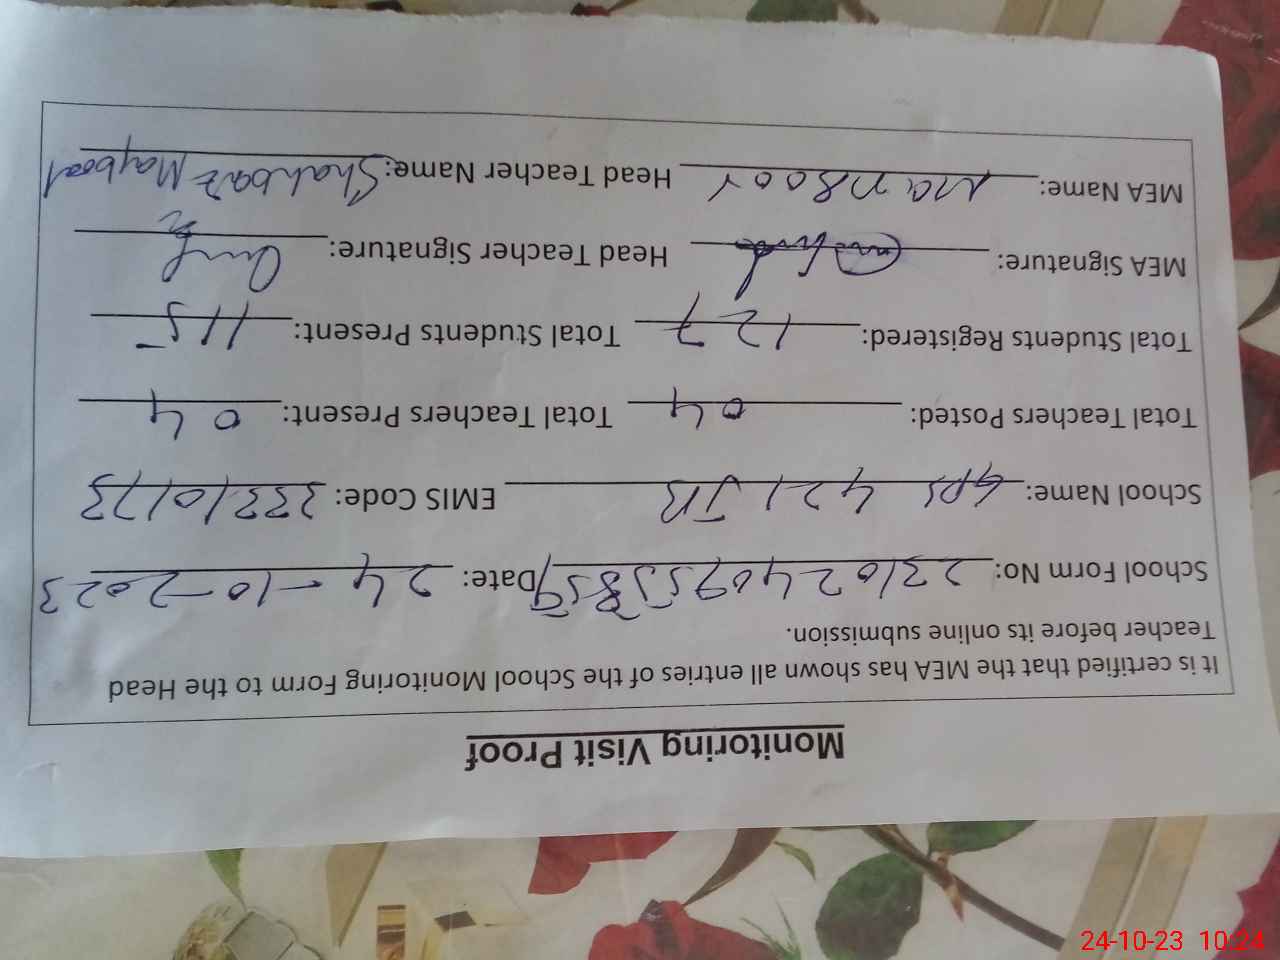 Monitoring Visit Proof
It is certified that the MEA has shown all entries of the School Monitoring Form to the Head
Teacher before its online submission.
School Form No: Date: 24-10-2023
School Name: GPS 421 JB EMIS Code: 33310173
Total Teachers Posted: 04 Total Teachers Present: 04
Total Students Registered: 127 Total Students Present: 115
MEA Signature: Head Teacher Signature:
MEA Name: Manzoor Head Teacher Name: Shahbaz
24-10-23 10:24